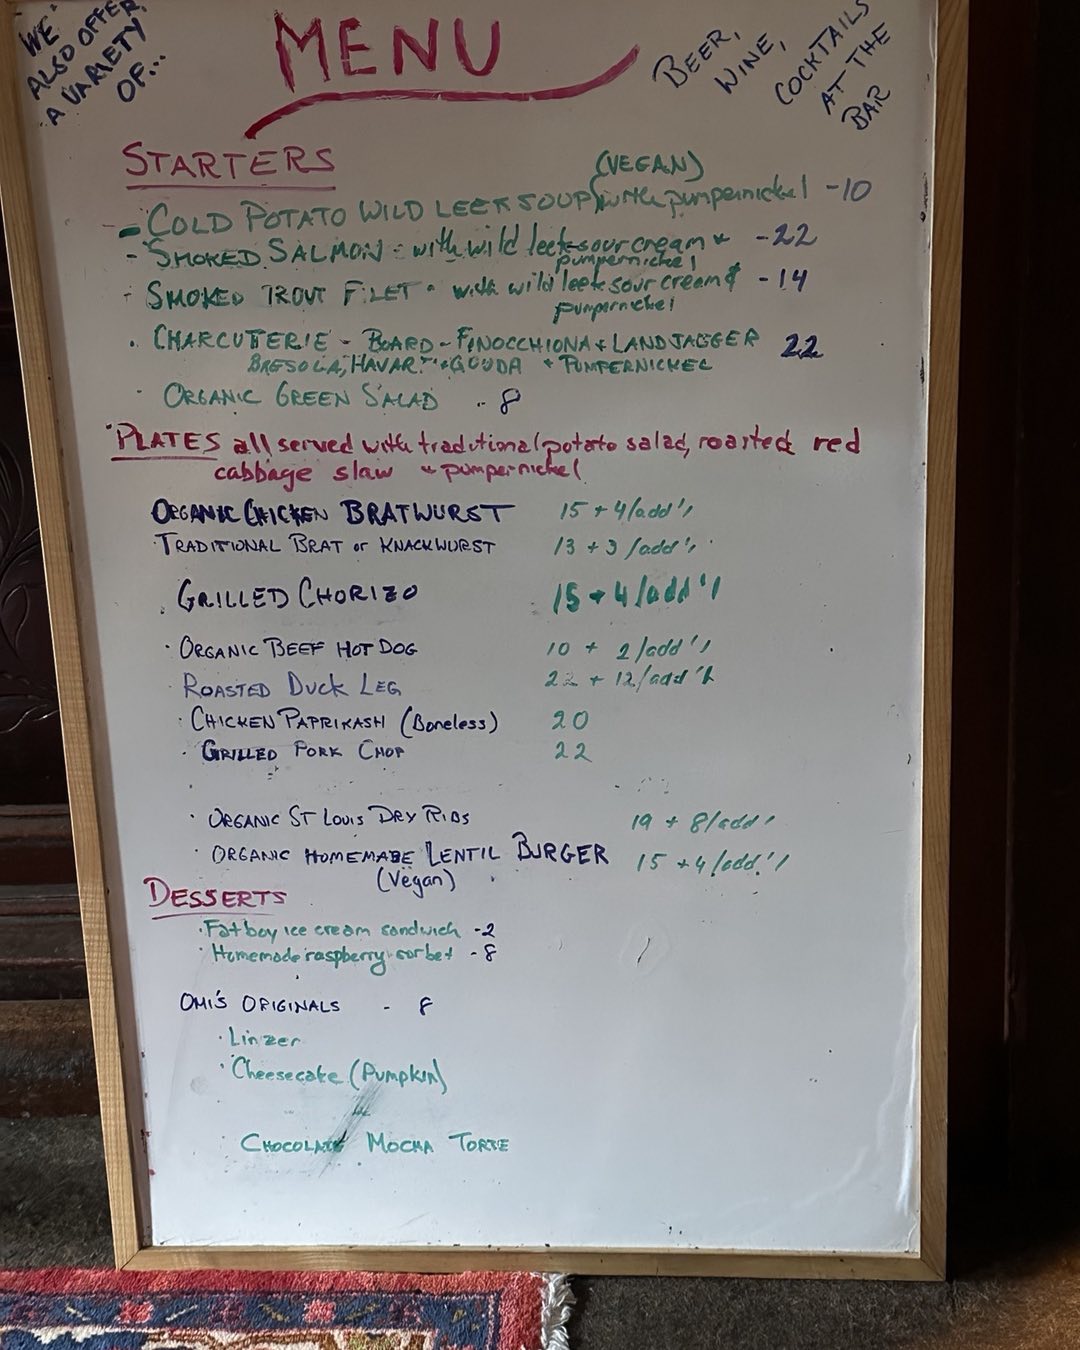 WE
ALSO OFFER
A VARIETY
OF...
MENU
BEER,
WINE,
COCKTAILS
AT THE
BAR
STARTERS
(VEGAN)
- COLD POTATO WILD LEEK SOUP with pumpernickel -10
- SMOKED SALMON - with wild leek sour cream + -22
pumpernickel
- SMOKED TROUT FILET - with wild leek sour cream & -14
pumpernickel
· CHARCUTTERIE - BOARD - FINOCCHIONA + LANDJAGGER 22
BRESOLA, HAVARTI + GOUDA + PUMPERNICKEL
· ORGANIC GREEN SALAD - 8
PLATES all served with traditional potato salad, roasted red
cabbage slaw + pumpernickel
ORGANIC CHICKEN BRATWURST 15 + 4/add'l
TRADITIONAL BRAT or KNACKWURST 13 + 3/add'l
· GRILLED CHORIZO 15 + 4/add'l
· ORGANIC BEEF HOT DOG 10 + 2/add'l
ROASTED DUCK LEG 22 + 12/add'l
· CHICKEN PAPRIKASH (Boneless) 20
· GRILLED PORK CHOP 22
· ORGANIC ST LOUIS DRY RIBS 19 + 8/add'
· ORGANIC HOMEMADE LENTIL BURGER 15 + 4/add'l
(Vegan)
DESSERTS
· Fatboy ice cream sandwich -2
· Homemade raspberry sorbet - 8
OMI'S ORIGINALS - 8
· Linzer
· Cheesecake (Pumpkin)
CHOCOLATE MOCHA TORTE